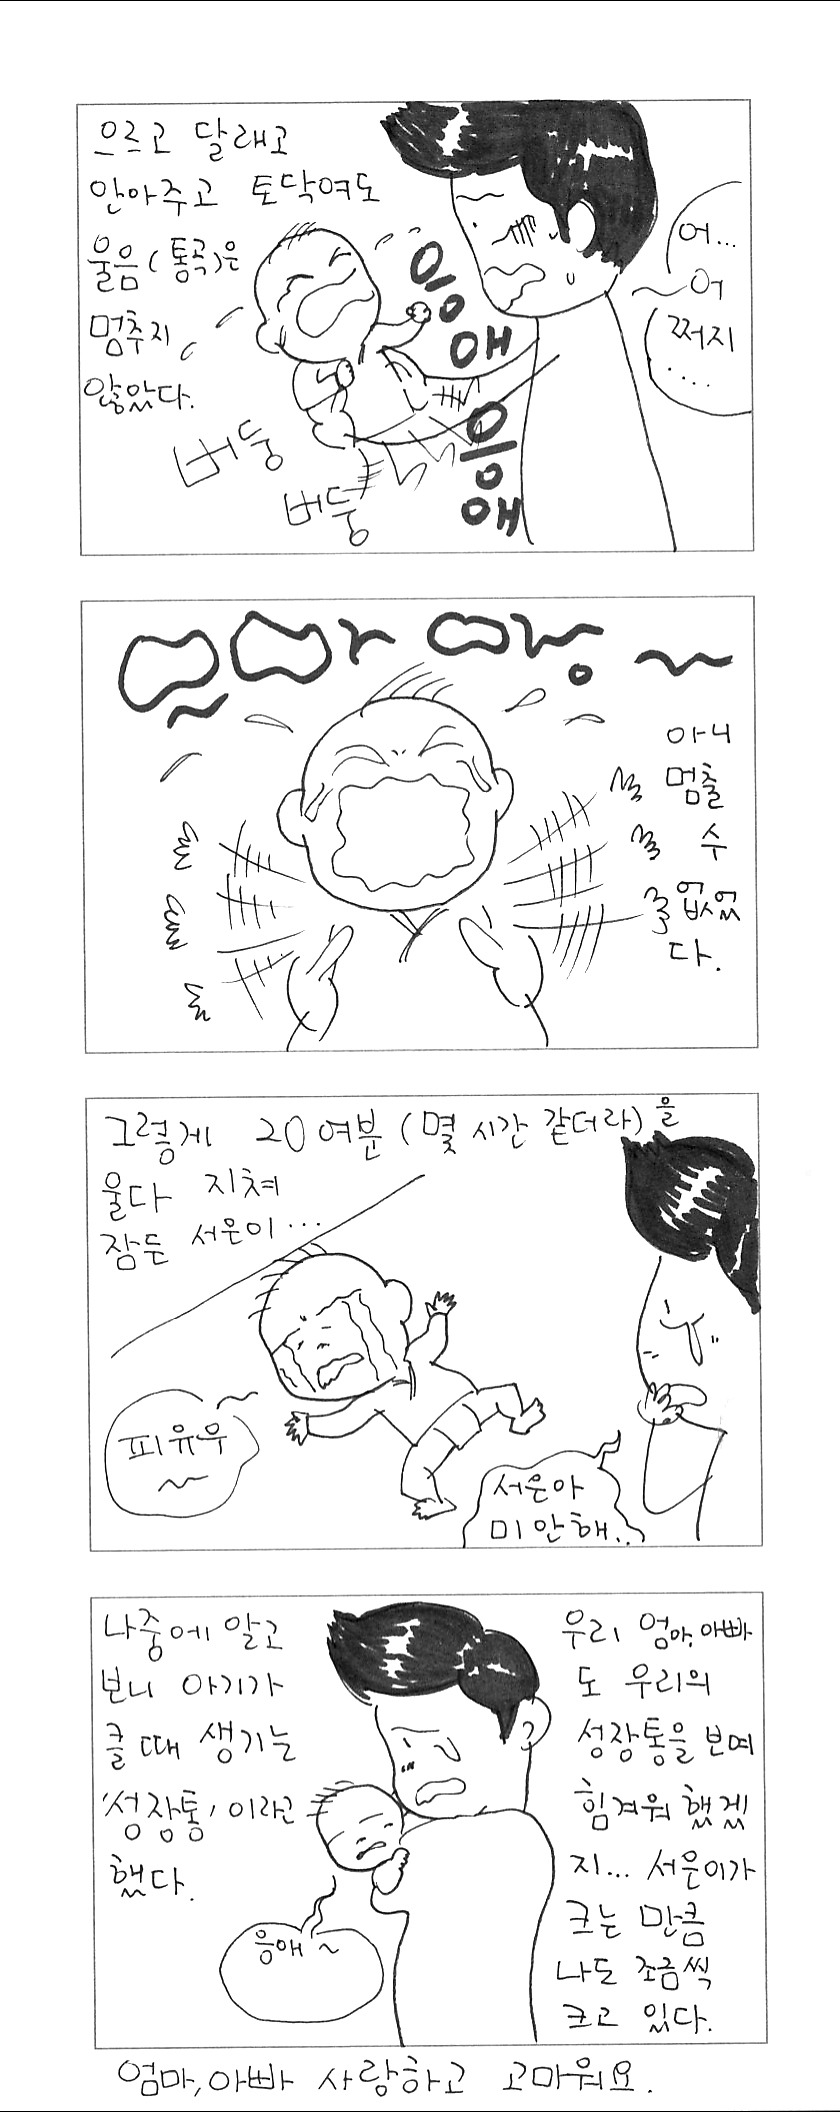 으르고 달래고
안아주고 토닥여도
울음(통곡)은
멈추지
않았다.
응
애
응
애
버둥
버둥
어...
어
쩌지
....
으아앙~
아니
멈출
수
없었
다.
그렇게 20여분(몇 시간 같더라)을
울다 지쳐
잠든 서은이...
피유우
~
서은아
미안해..
나중에 알고
보니 아기가
클때 생기는
'성장통'이라고
했다.
응애~
우리 엄마,아빠
도 우리의
성장통을 보며
힘겨워 했겠
지... 서은이가
크는 만큼
나도 조금씩
크고 있다.
엄마,아빠 사랑하고 고마워요.